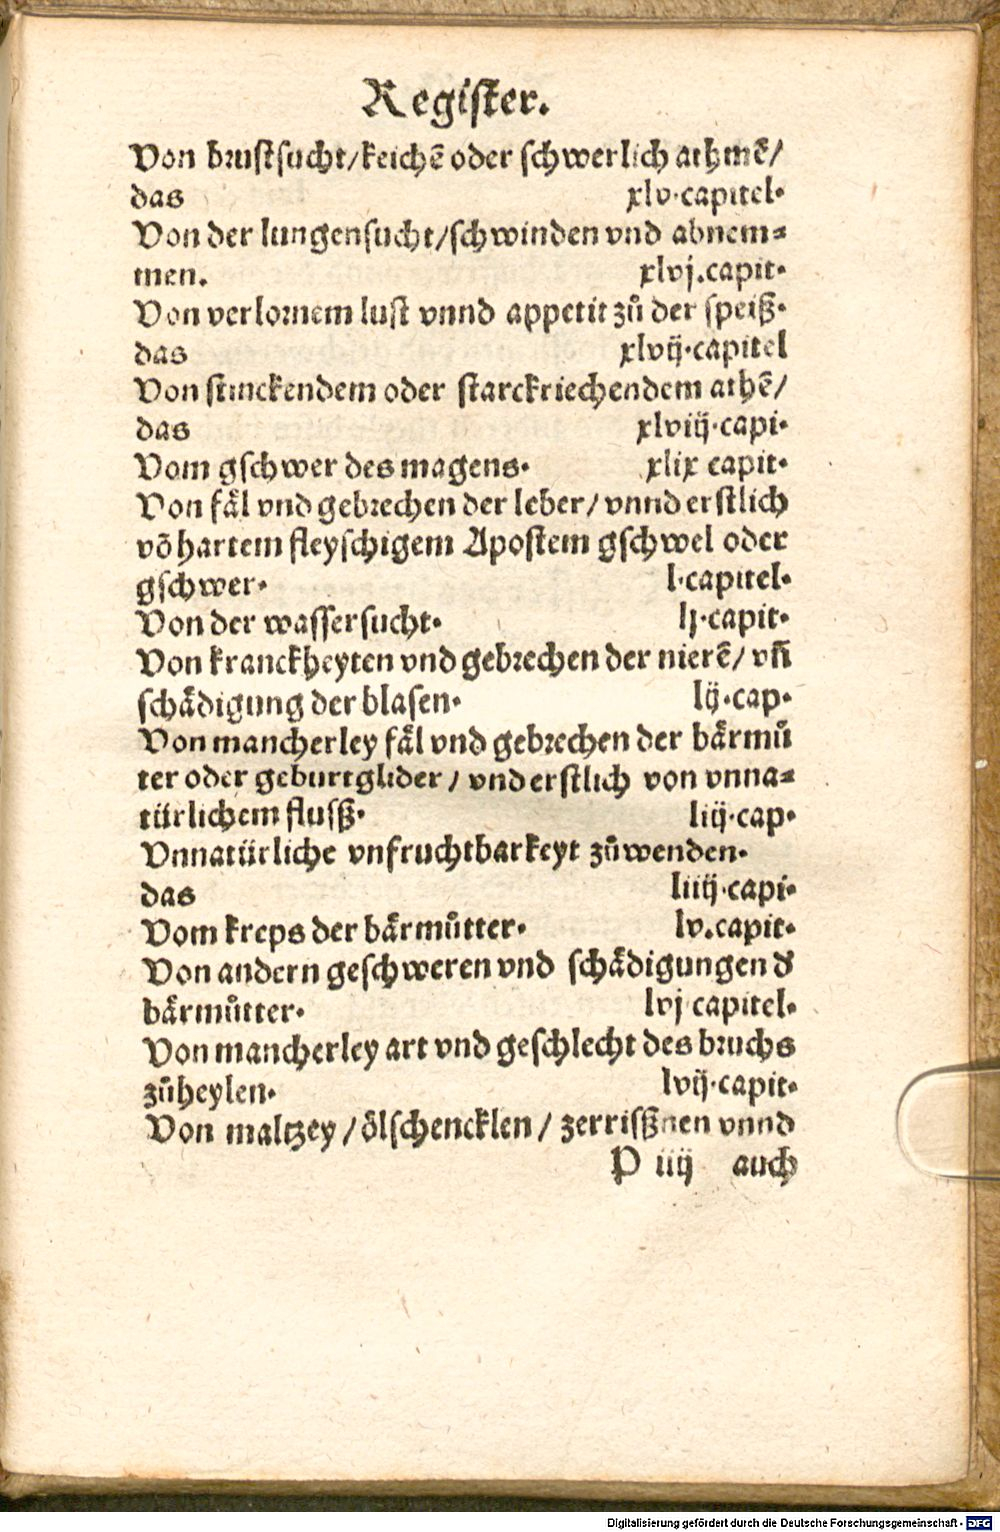 Register.
Von brustsucht/keichē oder schwerlich athmē/
das xlv·capitel·
Von der lungensucht/schwinden vnd abnem⸗
men. xlvj.capit·
Von verlornem lust vnnd appetit zů der speiß·
das xlvij·capitel
Von stinckendem oder starckriechendem athē/
das xlviij·capi·
Vom gschwer des magens· xlix capit·
Von fål vnd gebrechen der leber/ vnnd erstlich
võ hartem fleyschigem Apostem gschwel oder
gschwer· l·capitel·
Von der wassersucht· lj·capit·
Von kranckheyten vnd gebrechen der nierē/ vñ
schådigung der blasen· lij·cap·
Von mancherley fål vnd gebrechen der bårmů
ter oder geburtglider / vnd erstlich von vnna⸗
türlichem fluß· liij·cap·
Vnnatürliche vnfruchtbarkeyt zůwenden·
das liiij·capi·
Vom kreps der bårmůtter· lv.capit·
Von andern geschweren vnd schådigungen d'
bårmůtter· lvj capitel·
Von mancherley art vnd geschlecht des bruchs
zůheylen· lvij·capit·
Von maltzey / ölschencklen / zerrißnen vnnd
P iiij auch
Digitalisierung gefördert durch die Deutsche Forschungsgemeinschaft - DFG